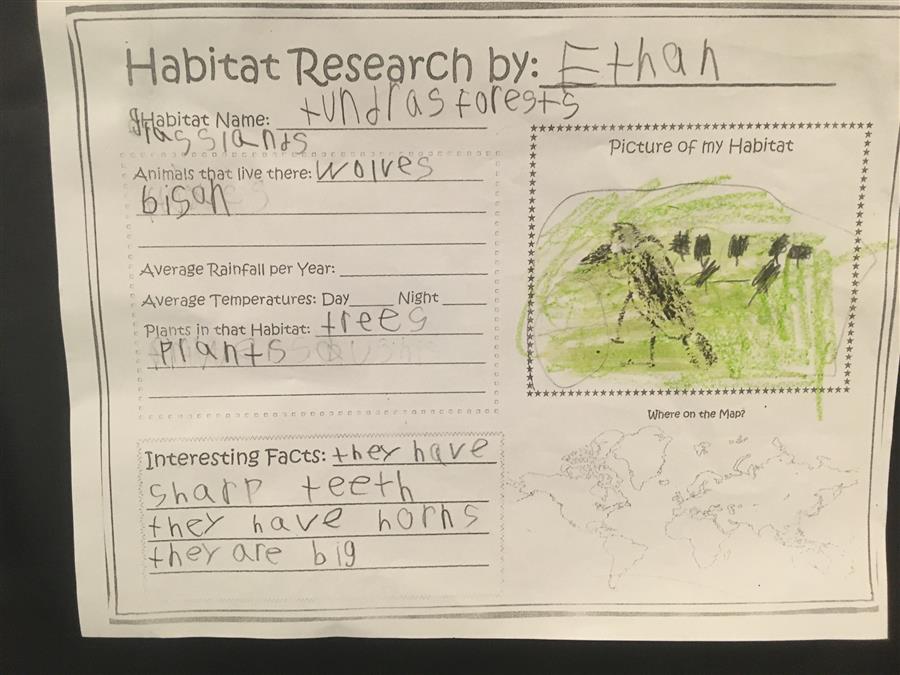 Habitat Research by: Ethan
Habitat Name: tundras forests
grasslands
Animals that live there: wolves
bison
Average Rainfall per Year:
Average Temperatures: Day Night
Plants in that Habitat: trees
plants
Interesting Facts: they have
sharp teeth
they have horns
they are big
Picture of my Habitat
Where on the Map?